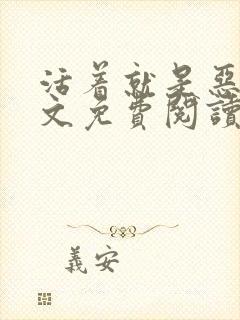 活着就呈惡
文免費閱讀
義安